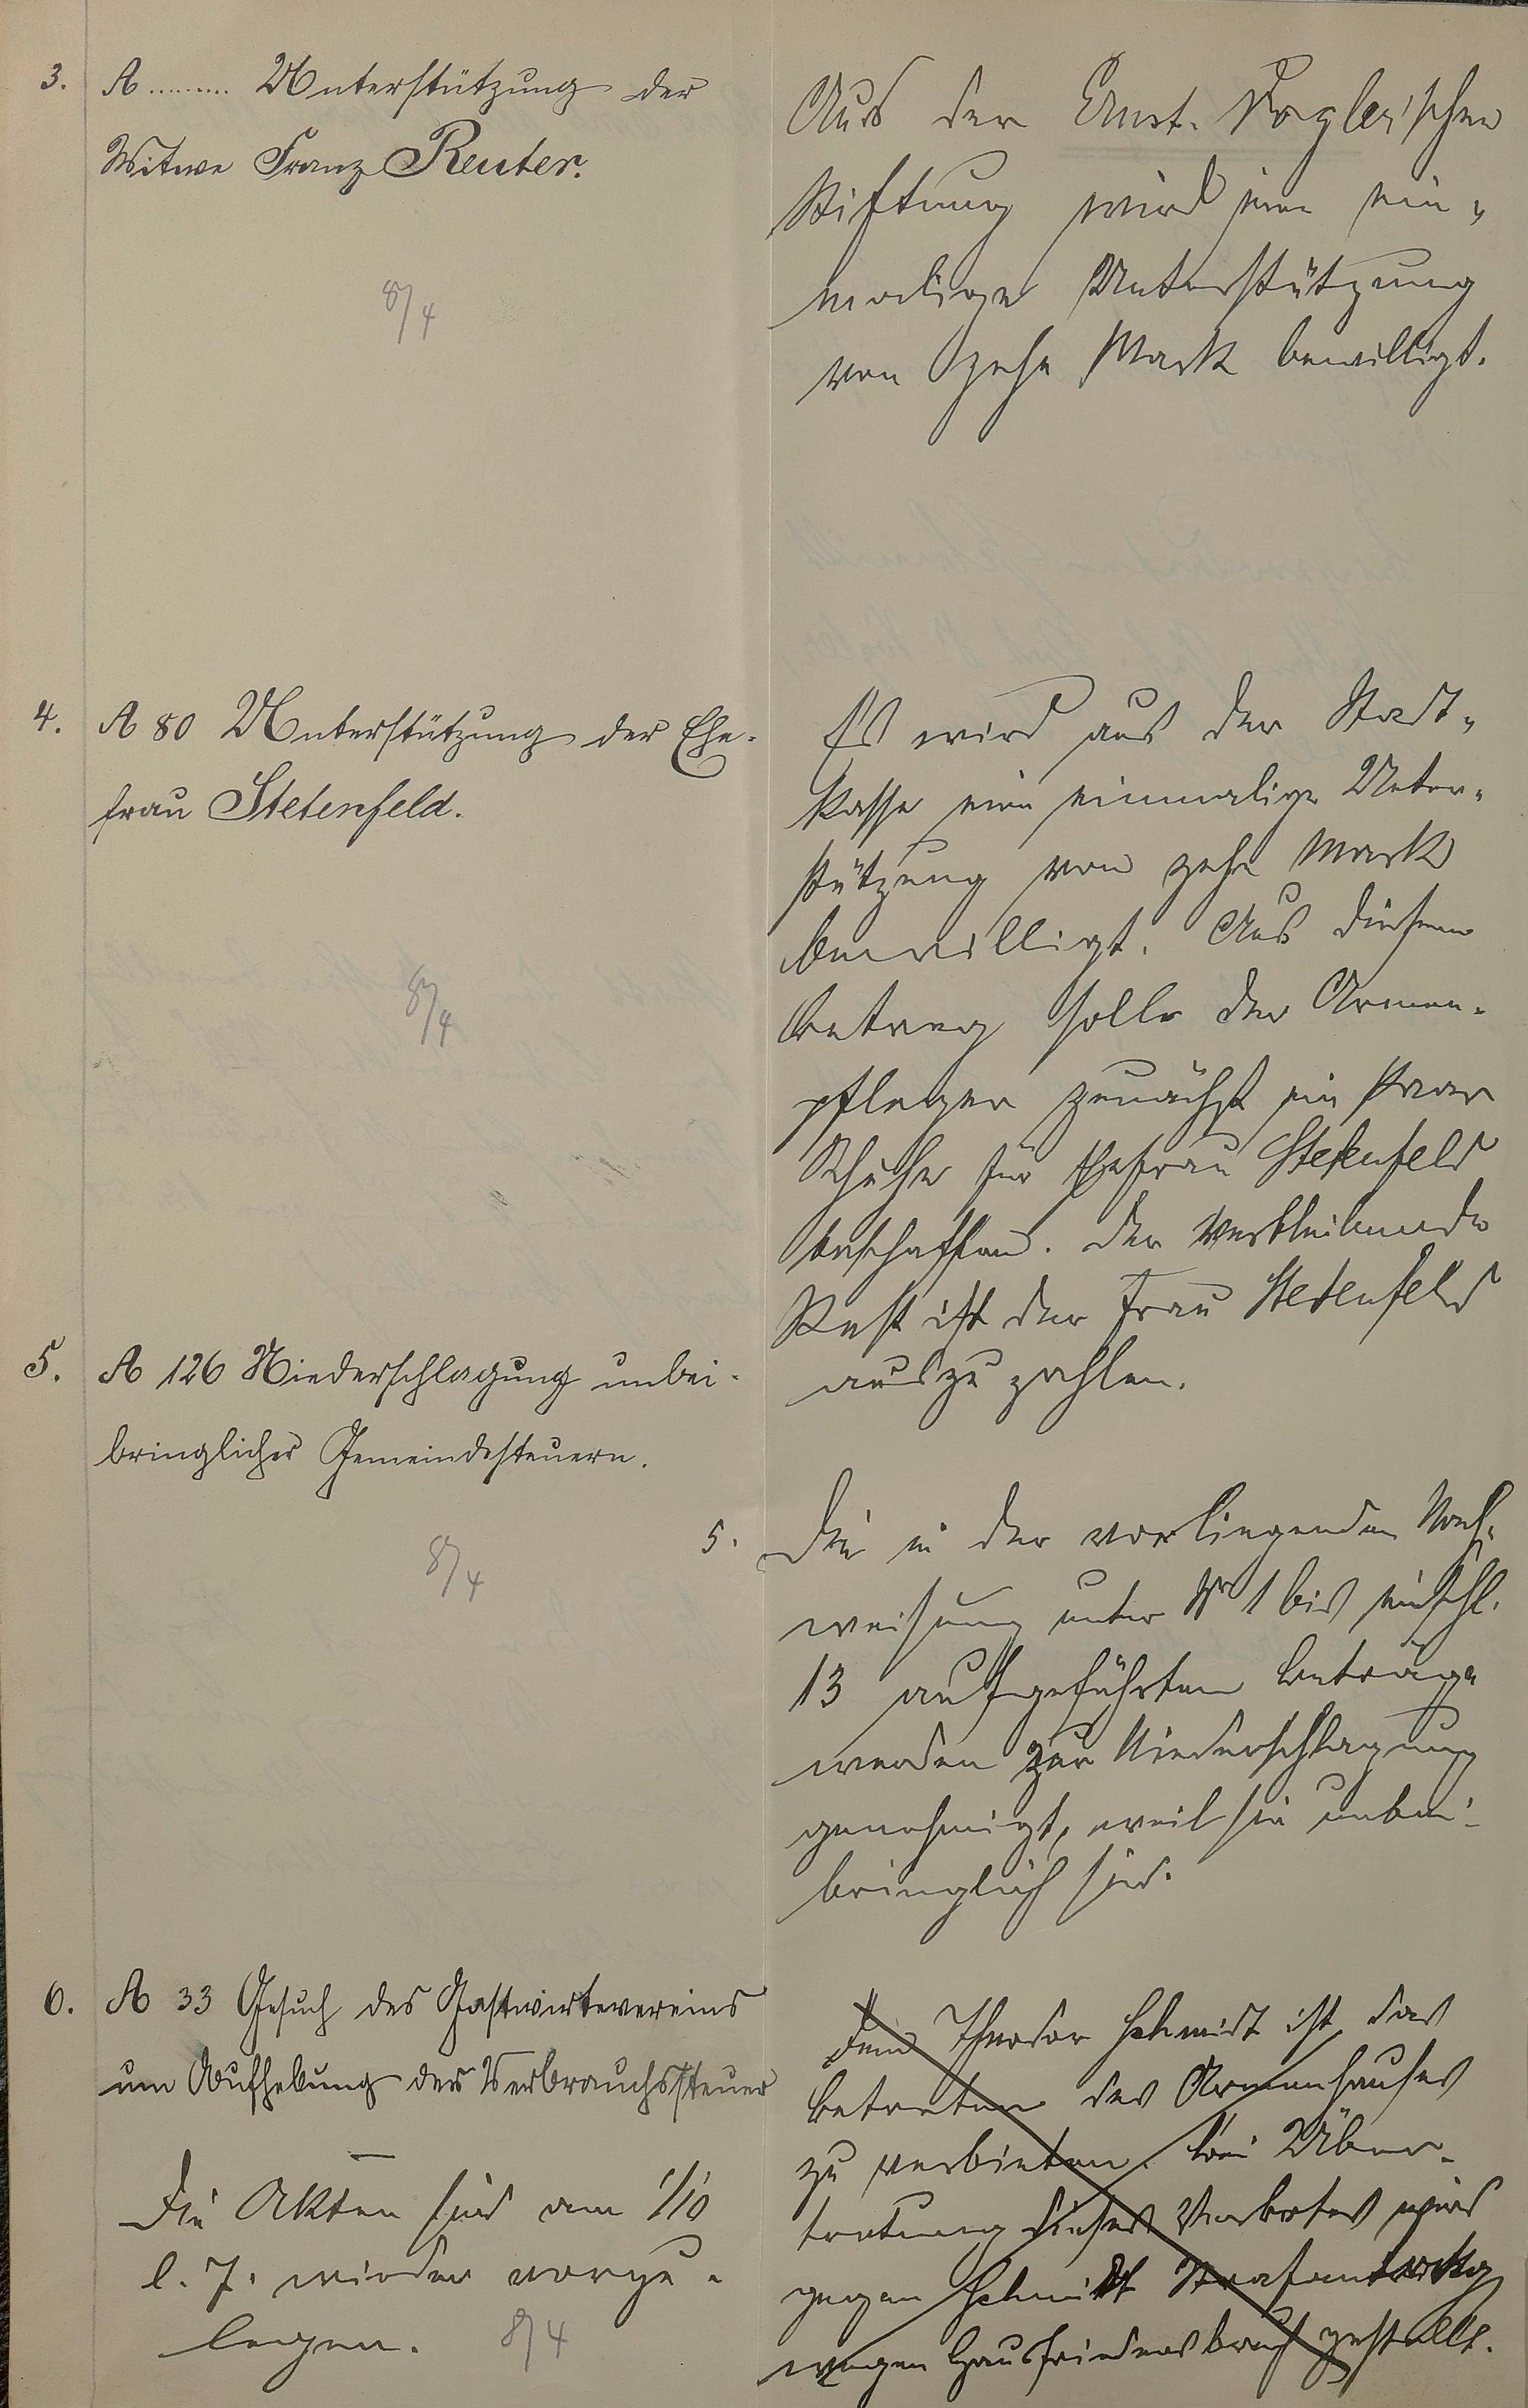 3. A ......... Unterstützung der
Witwe Franz Reuter.
8/4
Aus der Ernst. Voglerschen
Stiftung wird eine ein-
malige Unterstützung
von zehn Mark bewilligt.
4. A 80 Unterstützung der Ehe-
frau Stetenfeld.
8/4
Es wird aus der Stadt-
kasse eine einmalige Unter-
stützung von zehn Mark
bewilligt. Aus diesem
Betrag solle der Armen-
pfleger zunächst ein Paar
Schuhe für Ehefrau Stetenfeld
beschaffen. Der verbleibende
Rest ist der Frau Stetenfeld
auszuzahlen.
5. A 126 Niederschlagung unbei-
bringlicher Gemeindesteuern.
8/4
5. Die in der vorliegenden Nach-
weisung unter Nr 1 bis einschl.
13 aufgeführten Beträge
werden zur Niederschlagung
genehmigt, weil sie unbei-
bringlich sind.
6. A 33 Gesuch des Gastwirtevereins
um Aufhebung der Verbrauchssteuer
Die Akten sind am 1/10
l. J. wieder vorzu-
legen. 8/4
Dem Theodor Schmidt ist das
Betreten des Armenhauses
zu verbieten. Bei Über-
tretung dieses Verbotes wird
gegen Schmidt Strafantrag
wegen Hausfriedensbruch gestellt.